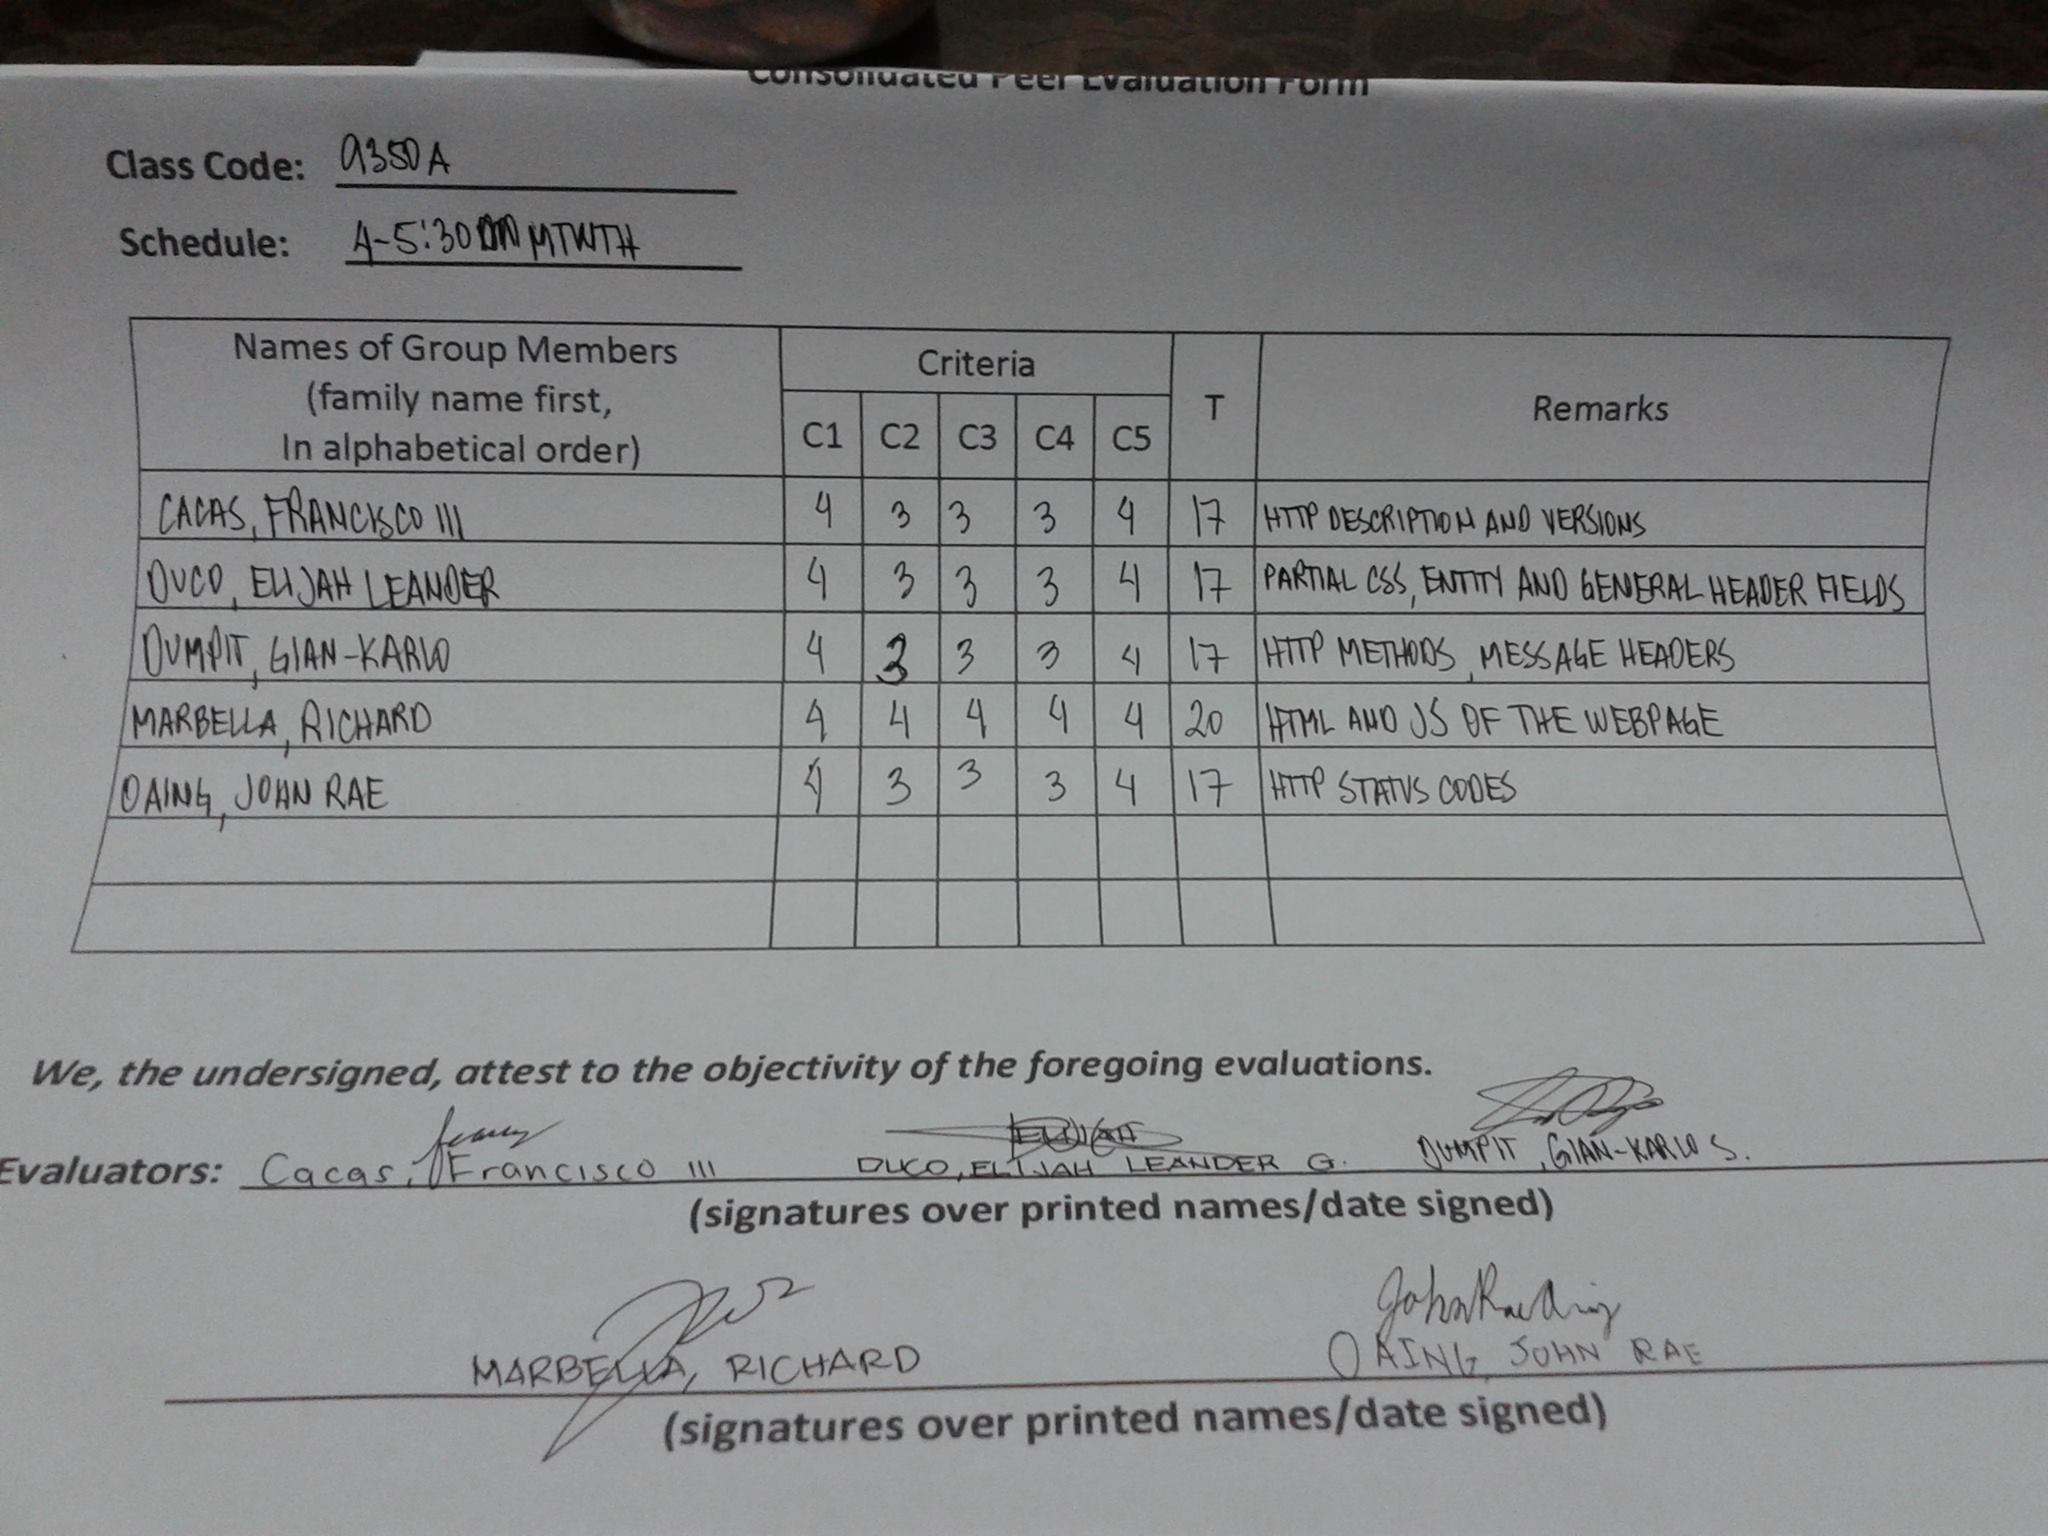 Consolidated Peer Evaluation Form
Class Code: 9350A
Schedule: 4-5:30 MTWTH
Names of Group Members
(family name first,
In alphabetical order)
Criteria
T
Remarks
C1 C2 C3 C4 C5
CACAS, FRANCISCO III 4 3 3 3 4 17 HTTP DESCRIPTION AND VERSIONS
DUCO, ELIJAH LEANDER 4 3 3 3 4 17 PARTIAL CSS, ENTITY AND GENERAL HEADER FIELDS
DUMPIT, GIAN-KARLO 4 3 3 3 4 17 HTTP METHODS, MESSAGE HEADERS
MARBELLA, RICHARD 4 4 4 4 4 20 HTML AND JS OF THE WEBPAGE
OAING, JOHN RAE 4 3 3 3 4 17 HTTP STATUS CODES
We, the undersigned, attest to the objectivity of the foregoing evaluations.
Evaluators: Cacas, Francisco III DUCO, ELIJAH LEANDER G. DUMPIT, GIAN-KARLO S.
(signatures over printed names/date signed)
John Rae Oaing
MARBELLA, RICHARD OAING, JOHN RAE
(signatures over printed names/date signed)